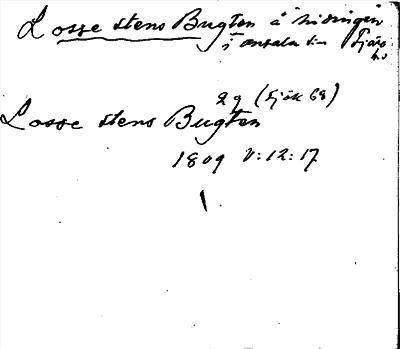 Losse stens Bugten å Nidingen
i Onsala sn Fjäre
hd
29 (Fjäre 68)
Losse stens Bugten
1809 V:12:17